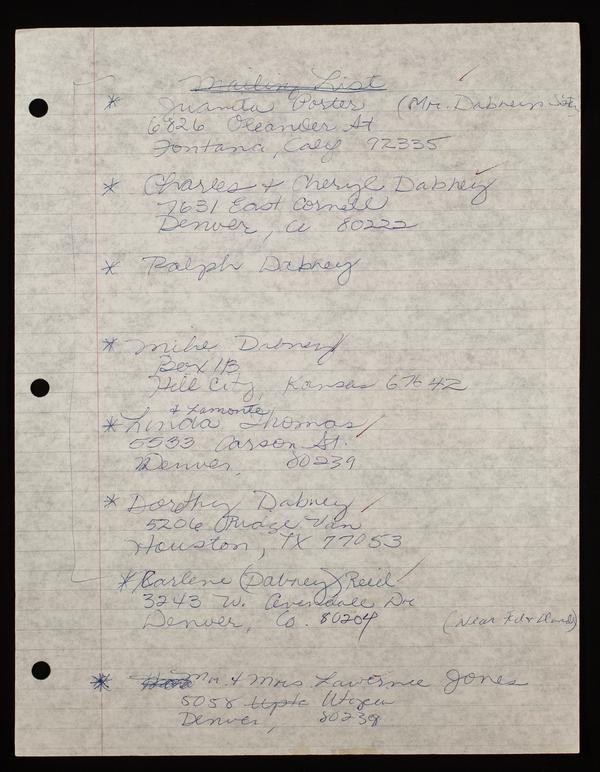 Mailing List
* Juanita Porter (Mr. Dabneys Sister
6826 Oleander St
Fontana, Calif 92335
* Charles & Cheryl Dabney
7631 East Cornell
Denver, Co 80222
* Ralph Dabney
* Mike Dabney
Box 1B
Hill City, Kansas 67642
& Lamonte
* Linda Thomas
5533 Carson St.
Denver, 80239
* Dorothy Dabney
5206 Ridge Van
Houston, TX 77053
* Earlene (Dabney) Reid
3243 W. Avondale Dr
Denver, Co. 80204 (Near Fed &
* Mr. & Mrs Lawernce Jones
5058
Denver, 80239